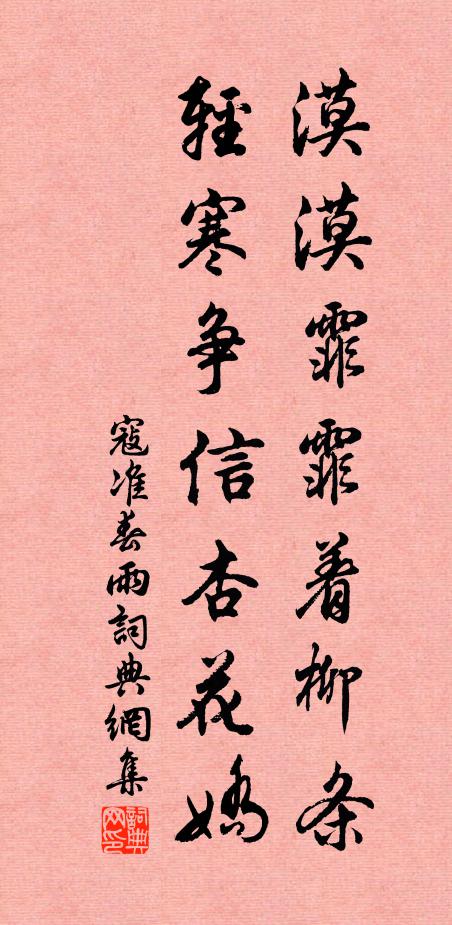 漠漠霏霏着柳条
轻寒争信杏花娇
寇准春雨詞典網集
詞典網印